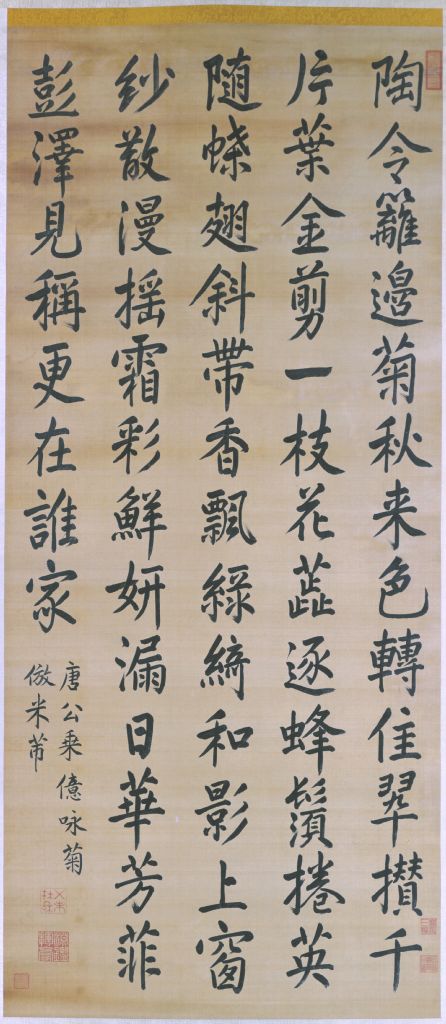 陶令籬邊菊秋来色轉佳翠攢千
片葉金剪一枝花蕋逐蜂鬚捲英
随蝶翅斜帶香飄緑綺和影上窗
紗散漫揺霜彩鮮妍漏日華芳菲
彭澤見稱更在誰家
唐公乗億咏菊
倣米芾